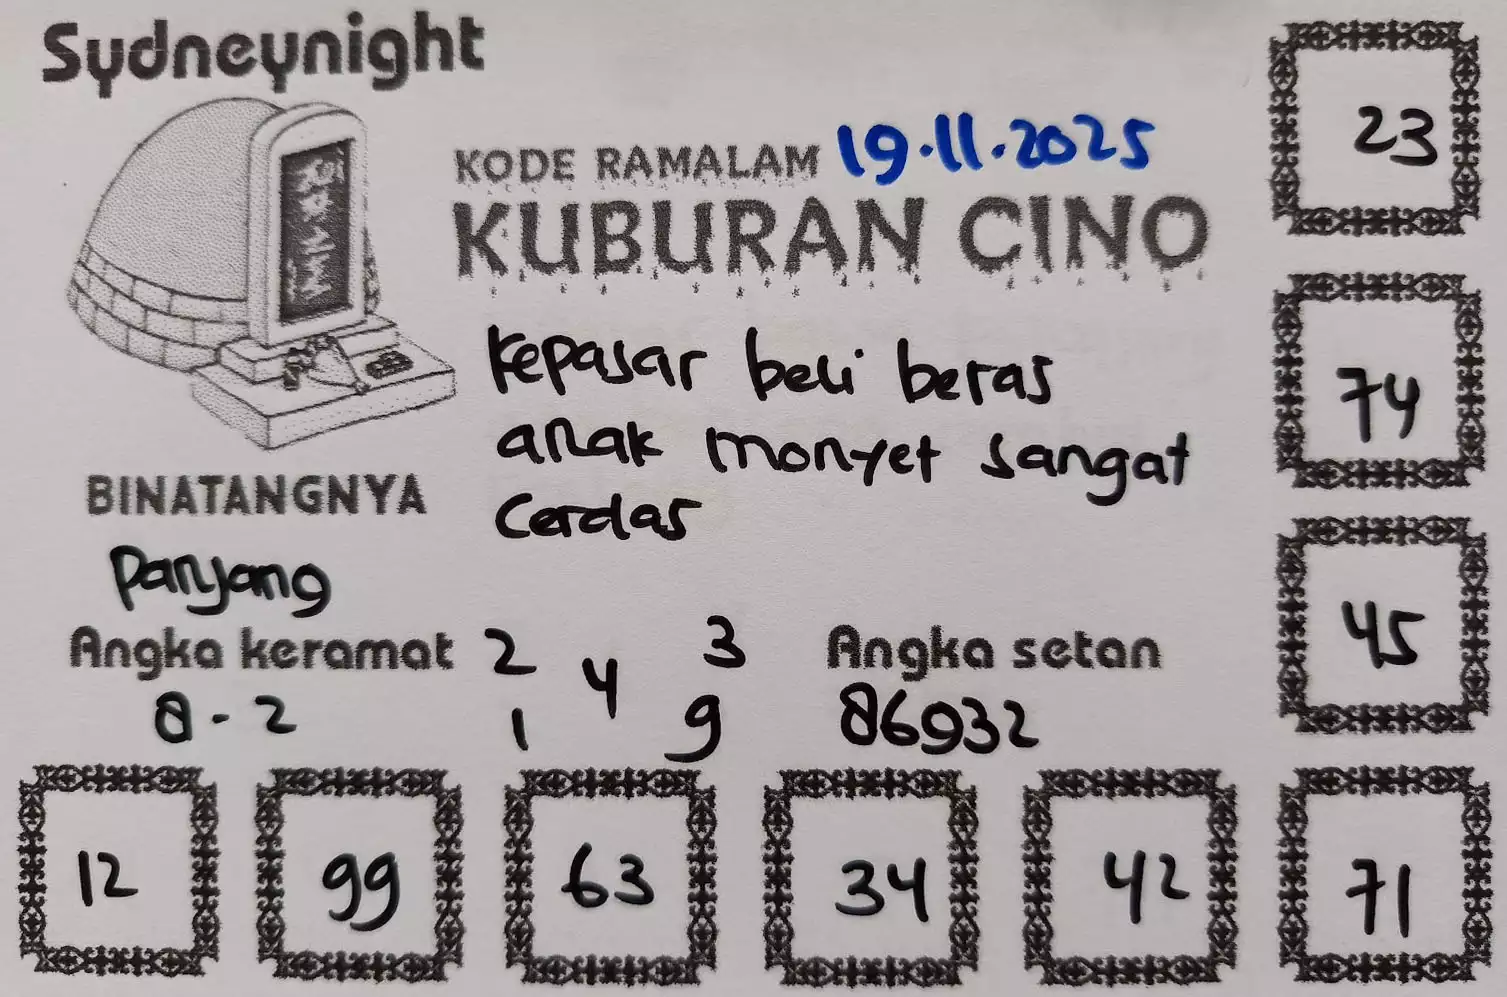 Sydneynight
KODE RAMALAM 19.11.2025
KUBURAN CINO
kepasar beli beras
anak monyet sangat
Cerdas
BINATANGNYA
Panjang
Angka keramat
8 - 2
2 3
4
1 9
Angka setan
86932
23
74
45
12 99 63 34 42 71